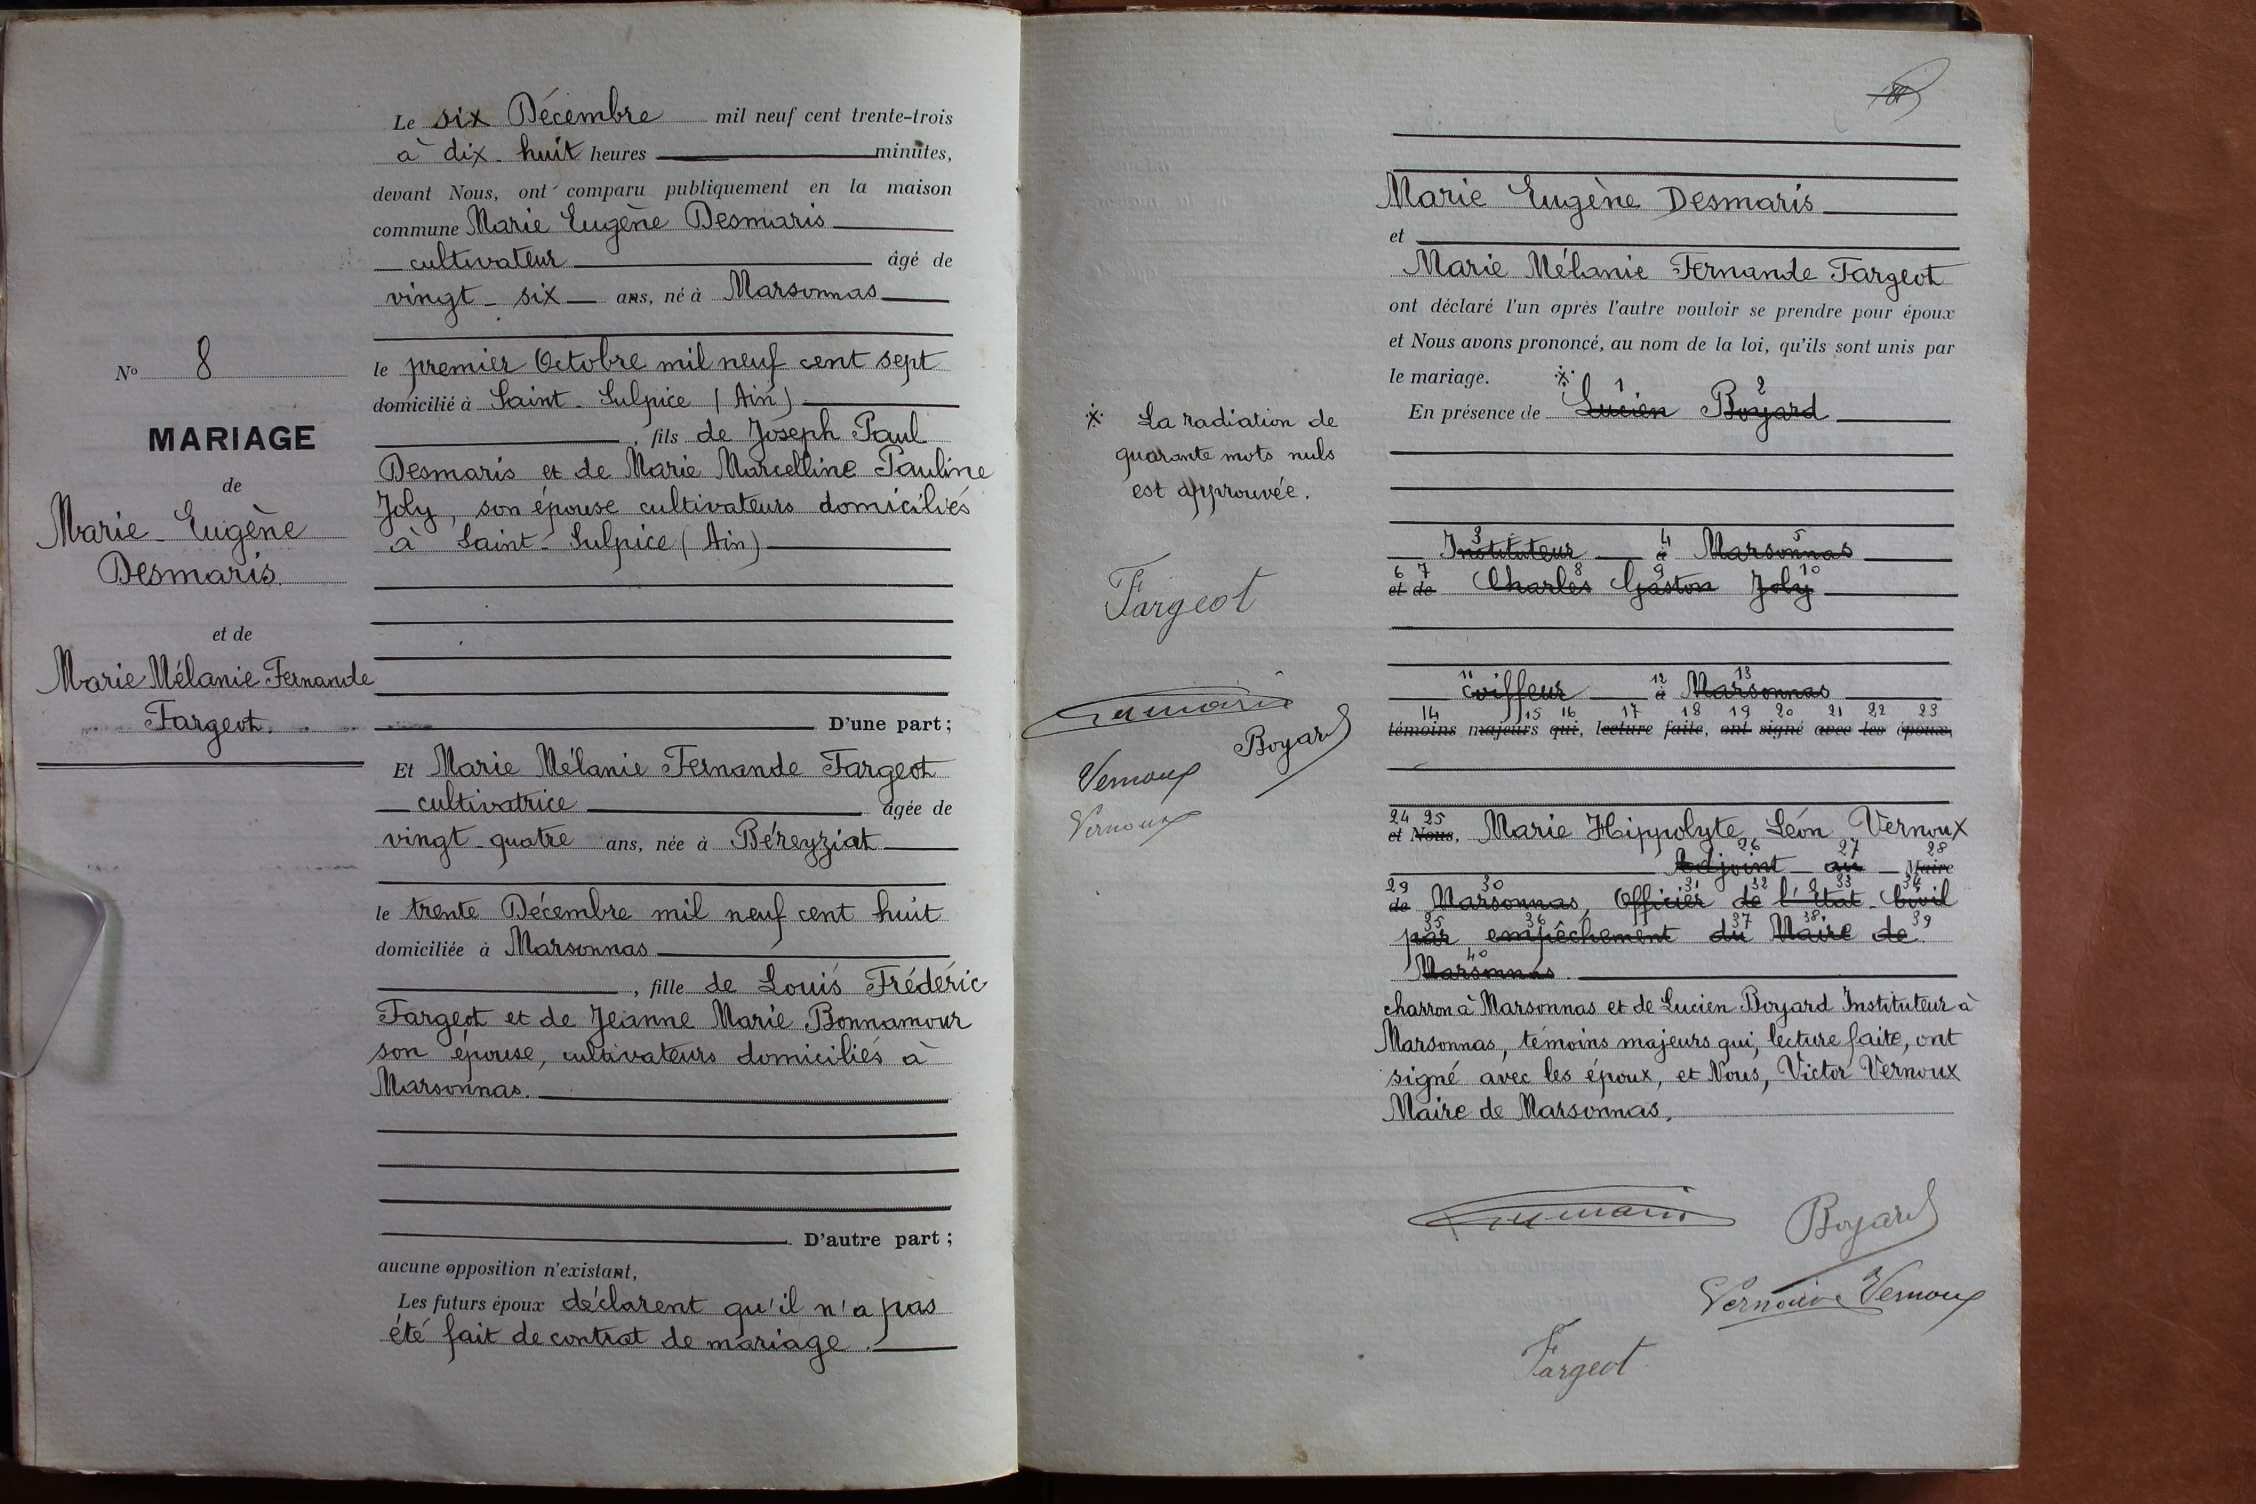 N° 8
MARIAGE
de
Marie Eugène
Desmaris.
et de
Marie Mélanie Fernande
Fargeot.
Le six Décembre mil neuf cent trente-trois
à dix-huit heures minutes,
devant Nous, ont comparu publiquement en la maison
commune Marie Eugène Desmaris
cultivateur âgé de
vingt-six ans, né à Marsonnas
le premier Octobre mil neuf cent sept
domicilié à Saint-Sulpice (Ain)
, fils de Joseph Paul
Desmaris et de Marie Marcelline Pauline
Joly, son épouse cultivateurs domiciliés
à Saint-Sulpice (Ain)
D'une part ;
Et Marie Mélanie Fernande Fargeot
cultivatrice âgée de
vingt-quatre ans, née à Béreyziat
le trente Décembre mil neuf cent huit
domiciliée à Marsonnas
, fille de Louis Frédéric
Fargeot et de Jeanne Marie Bonnamour
son épouse, cultivateurs domiciliés à
Marsonnas.
D'autre part ;
aucune opposition n'existant,
Les futurs époux déclarent qu'il n'a pas
été fait de contrat de mariage.
Marie Eugène Desmaris
et
Marie Mélanie Fernande Fargeot
ont déclaré l'un après l'autre vouloir se prendre pour époux
et Nous avons prononcé, au nom de la loi, qu'ils sont unis par
le mariage.
※ 1 2
En présence de Lucien Boyard
3 4 5
Instituteur à Marsonnas
6 7 8 9 10
et de Charles Gaston Joly
11 12 13
coiffeur à Marsonnas
14 15 16 17 18 19 20 21 22 23
témoins majeurs qui, lecture faite, ont signé avec les époux,
24 25
et Nous, Marie Hippolyte Léon Vernoux
26 27 28
Adjoint au Maire
29 30 31 32 33 34
de Marsonnas, Officier de l'Etat-Civil
35 36 37 38 39
par empêchement du Maire de
40
Marsonnas.
charron à Marsonnas et de Lucien Boyard Instituteur à
Marsonnas, témoins majeurs qui, lecture faite, ont
signé avec les époux, et Nous, Victor Vernoux
Maire de Marsonnas.
※ La radiation de
quarante mots nuls
est approuvée.
Fargeot
Desmaris
Boyard
Vernoux
Vernoux
Desmaris
Boyard
Vernoux Vernoux
Fargeot